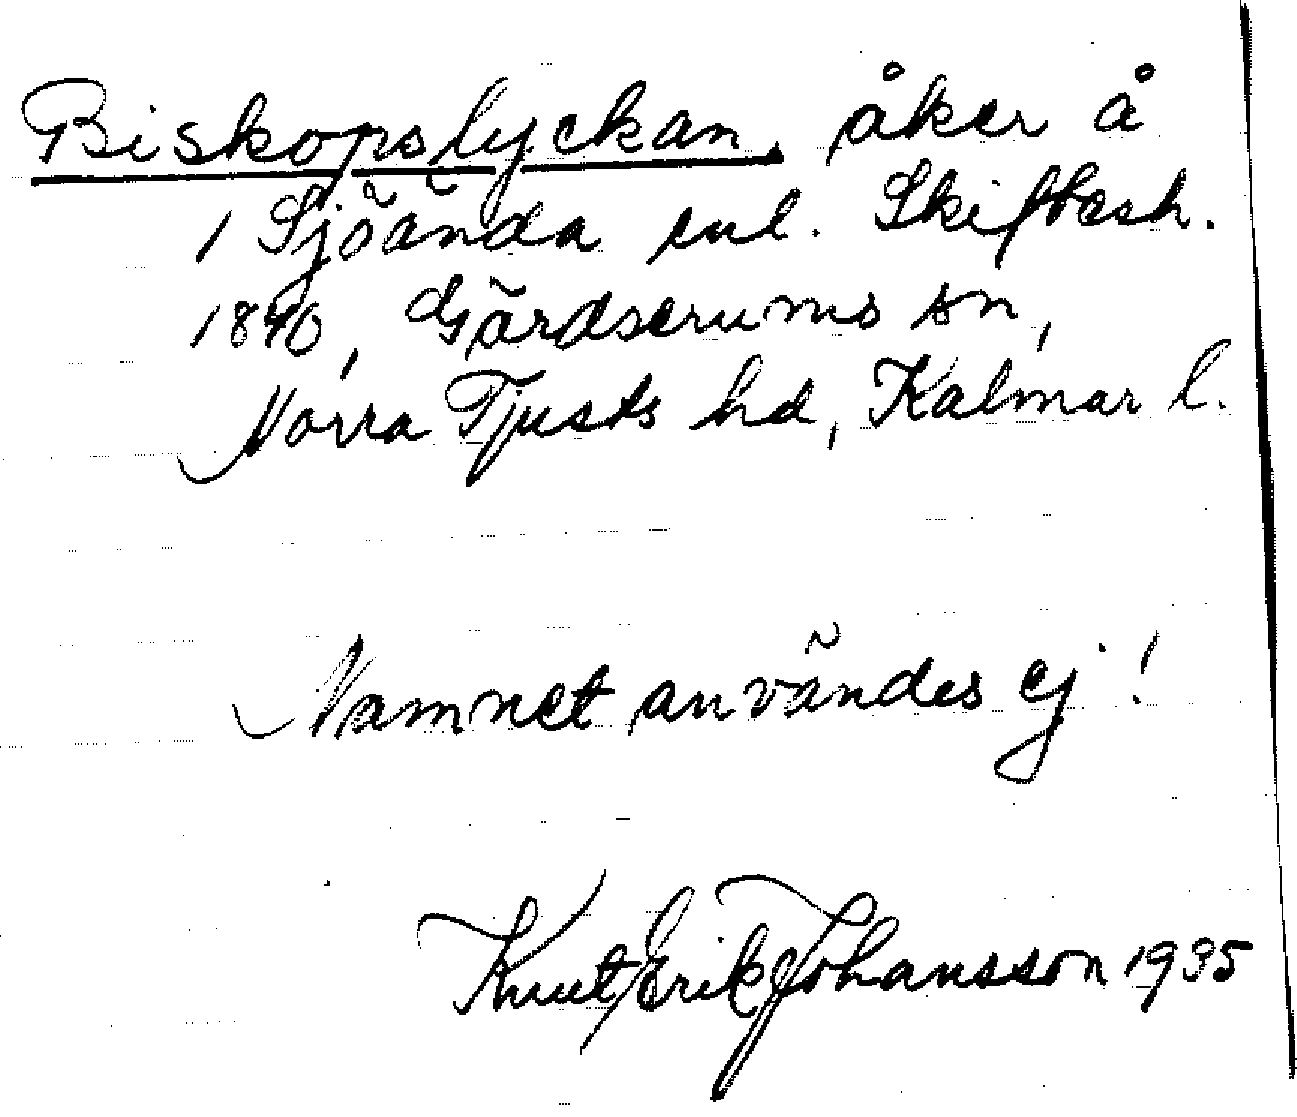 Biskopslyckan, åker å
1 Sjöända enl. Skifbesk.
1840, Gärdserums sn,
Norra Tjusts hd, Kalmar l.
Namnet användes ej!
Knut Erik Johansson 1935